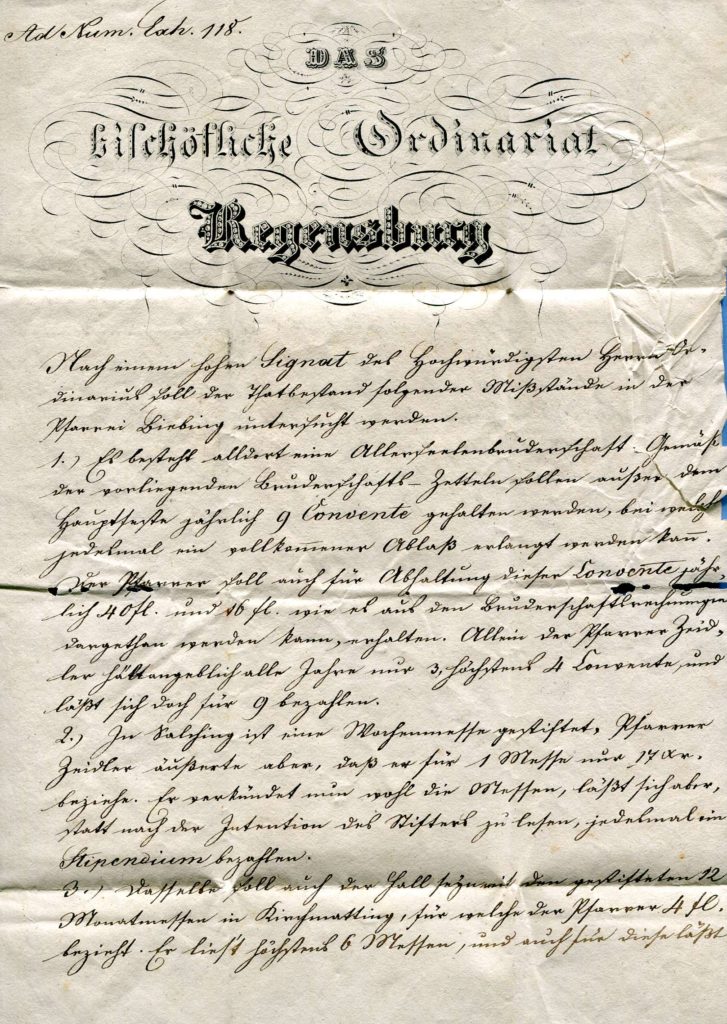 Ad Num. Exh. 118.
DAS
bischöfliche Ordinariat
Regensburg
Nach einem hohen Signat des Hochwürdigsten Herrn Or-
dinarius soll der Thatbestand folgender Mißstände in der
Pfarrei untersucht werden.
1.) Es besteht alldort eine Allerseelenbruderschaft. Gemäß
der vorliegenden Bruderschafts-Zetteln sollen außer dem
Hauptfeste jährlich 9 Convente gehalten werden, bei welch
jedesmal ein vollkommener Ablaß erlangt werden kan.
Der Pfarrer soll auch für Abhaltung dieser Convente jähr-
lich 40 fl. und 16 fl. wie es aus den Bruderschaftsrechnungen
dargethan werden kann, erhalten. Allein der Pfarrer Zeid-
ler hält angeblich alle Jahre nur 3, höchstens 4 Convente, und
läßt sich doch für 9 bezahlen.
2.) In Salching ist eine Wochenmesse gestiftet, Pfarrer
Zeidler äußerte aber, daß er für 1 Messe nur 17 Xr.
beziehe. Er verkündet nun wohl die Messen, läßt sich aber,
statt nach der Intention des Stifters zu lesen, jedesmal ein
Stipendium bezahlen.
3.) Dasselbe soll auch der Fall seyn mit den gestifteten 12
Monatmessen in Kirchmatting, für welche der Pfarrer 4 fl.
bezieht. Er liest höchstens 6 Messen, und auch für diese läßt